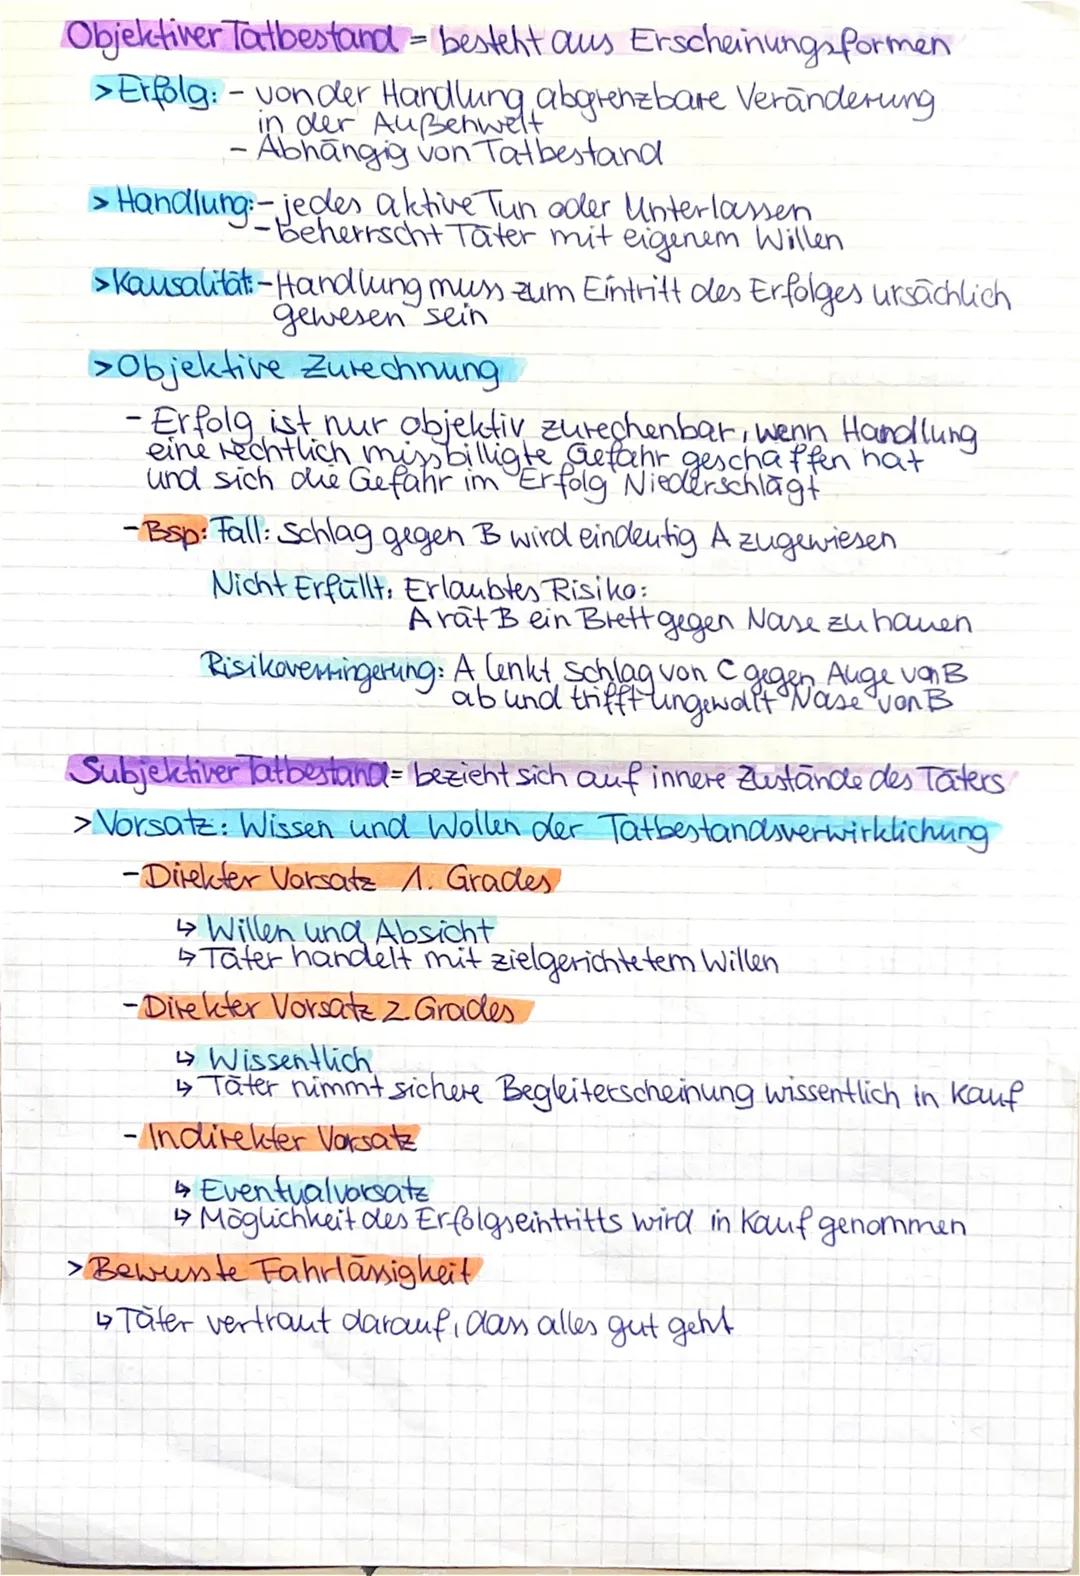 Objektiver Tatbestand = besteht aus Erscheinungsformen
> Erfolg: - von der Handlung abgrenzbare Veränderung
in der Außenwelt
- Abhängig von Tatbestand
> Handlung: - jedes aktive Tun oder Unterlassen
- beherrscht Täter mit eigenem Willen
> Kausalität: - Handlung muss zum Eintritt des Erfolges ursächlich
gewesen sein
> Objektive Zurechnung
- Erfolg ist nur objektiv zurechenbar, wenn Handlung
eine rechtlich missbilligte Gefahr geschaffen hat
und sich die Gefahr im Erfolg Niederschlägt
- Bsp: Fall: Schlag gegen B wird eindeutig A zugewiesen
Nicht Erfüllt: Erlaubtes Risiko:
A rät B ein Brett gegen Nase zu hauen
Risikoverringerung: A lenkt Schlag von C gegen Auge von B
ab und trifft ungewollt Nase von B
Subjektiver Tatbestand = bezieht sich auf innere Zustände des Täters
> Vorsatz: Wissen und Wollen der Tatbestandsverwirklichung
- Direkter Vorsatz 1. Grades
↳ Willen und Absicht
↳ Täter handelt mit zielgerichtetem Willen
- Direkter Vorsatz 2 Grades
↳ Wissentlich
↳ Täter nimmt sichere Begleiterscheinung wissentlich in Kauf
- Indirekter Vorsatz
↳ Eventualvorsatz
↳ Möglichkeit des Erfolgseintritts wird in Kauf genommen
> Bewusste Fahrlässigkeit
↳ Täter vertraut darauf, dass alles gut geht